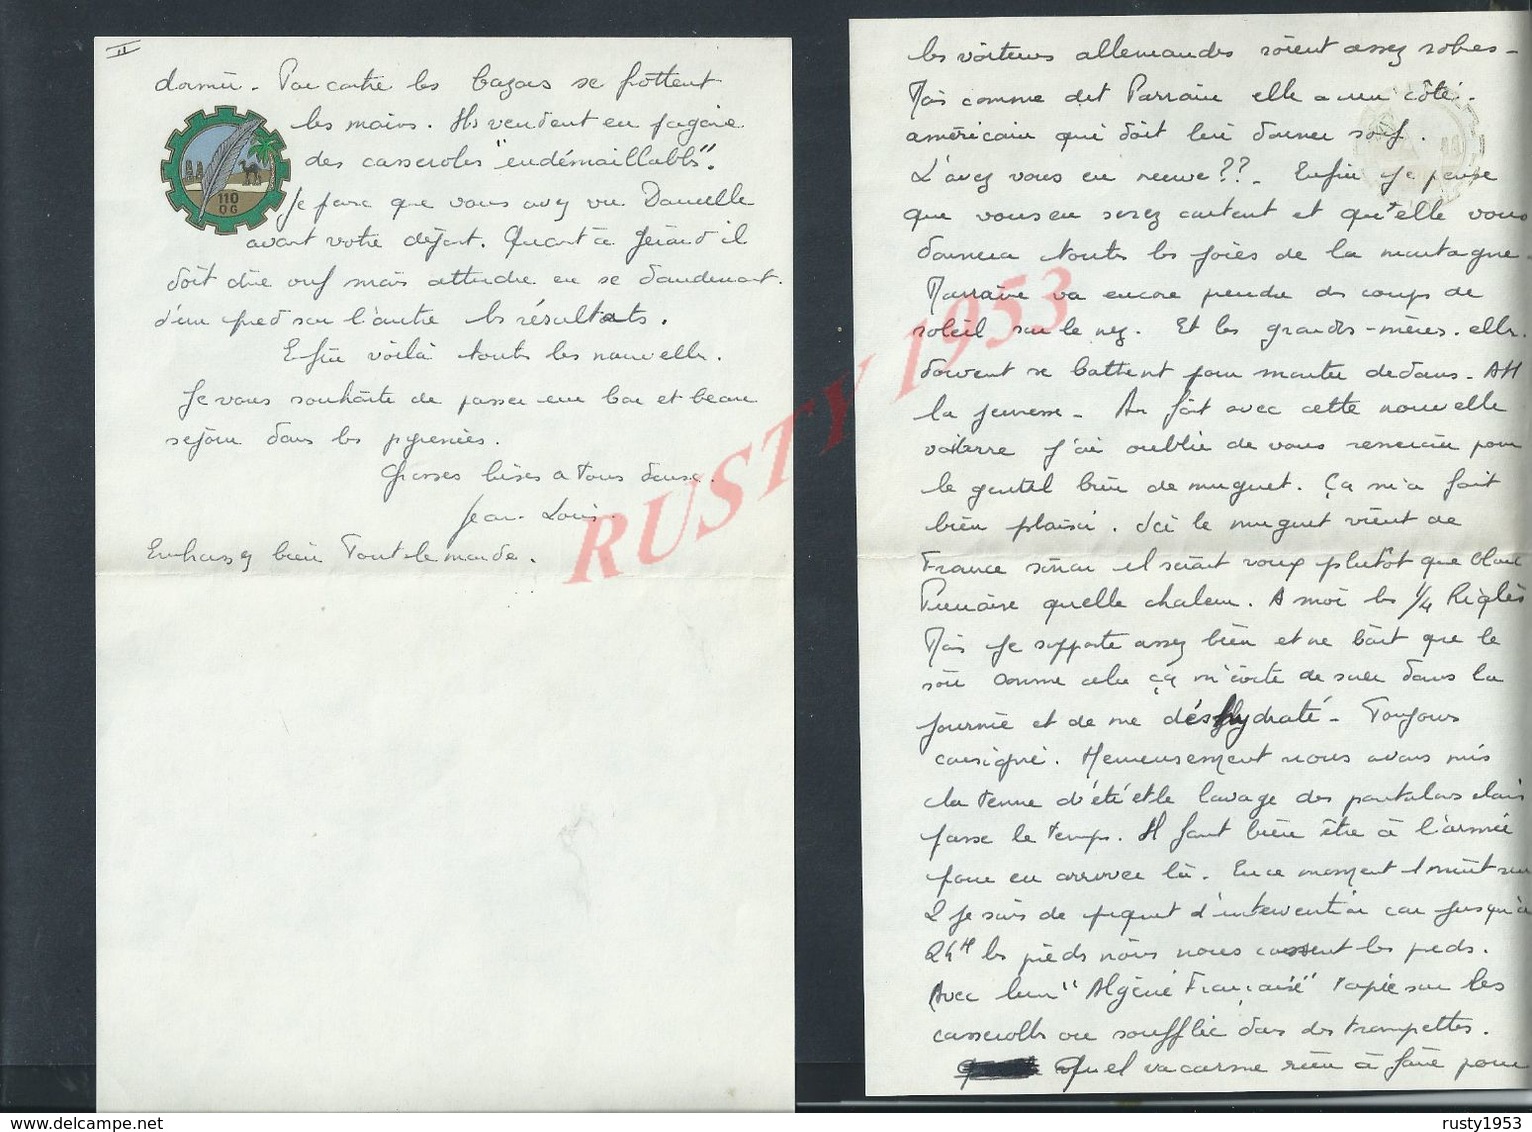 II
dormir. Par contre les bazars se frottent
les mains. Ils vendent en pagaie
des casseroles "indémaillables".
110
OG
Je pense que vous avez vu Danielle
avant votre départ. Quant à Gérard il
doit dire ouf mais attendre en se dandinant
d'un pied sur l'autre les résultats.
Enfin voilà toutes les nouvelles.
Je vous souhaite de passer un bon et beau
séjour dans les pyrenées.
Grosses bises a tous deux.
Jean-Louis.
Embrassez bien Tout le monde.
les voitures allemandes soient assez sobres -
Mais comme dit Parrain elle a un côté
américain qui doit lui donner soif.
L'avez vous eu neuve ??. Enfin je pense
que vous en serez content et qu'elle vous
donnera toutes les joies de la montagne.
Marraine va encore prendre des coups de
soleil sur le nez. Et les grandes-mères. elles
doivent se battent pour monter dedans. AH
la jeunesse. Au fait avec cette nouvelle
j'ai oublié de vous remercier pour
le gentil brin de muguet. Ça m'a fait
bien plaisir. Ici le muguet vient de
France sinon il serait roux plutôt que blanc
quelle chaleur. A moi les 1/4 Réglés
Mais je supporte assez bien et ne bois que le
soir comme cela ça m'évite de suer dans la
journée et de me déshydraté. Toujours
consigné. Heureusement nous avons mis
la tenue d'été et le lavage des pantalons clairs
passe le temps. Il faut bien être à l'armée
pour en arriver là. En ce moment 1 nuit sur
2 je suis de piquet d'intervention car jusqu'à
24H les pieds noirs nous cassent les pieds.
Avec leur "Algérie Française" tapée sur les
casseroles ou soufflée dans des trompettes.
Quel vacarme rien à faire pour
RUSTY 1953
rusty1953